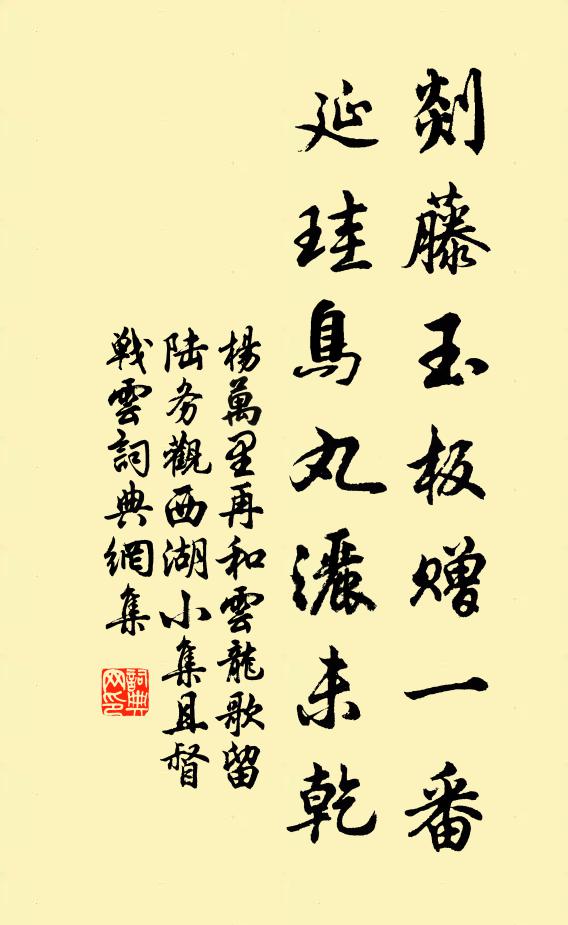 剡藤玉板赠一番
延珪鳥丸灑未乾
楊萬里再和雲龍歌留
陆务觀西湖小集且督
戦雲詞典網集
詞典
网印